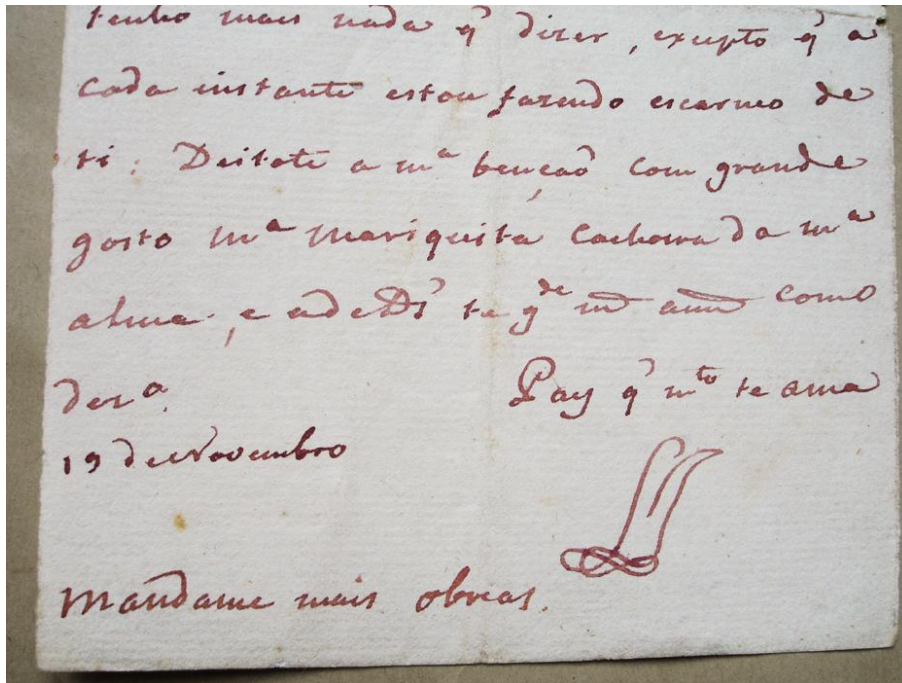 tenho mais nada q̃ dizer, exepto q̃ a
cada instante estou fazendo escarneo de
ti: Deitote a mª bençaõ com grande
gosto mª Mariquita Cachorra da mª
alma, e a Ds̃ te gᵈᵉ mᵗ annˢ como
dezº
Pay q̃ mᵗᵒ te ama
19 de Novembro
Mandame mais obreas.